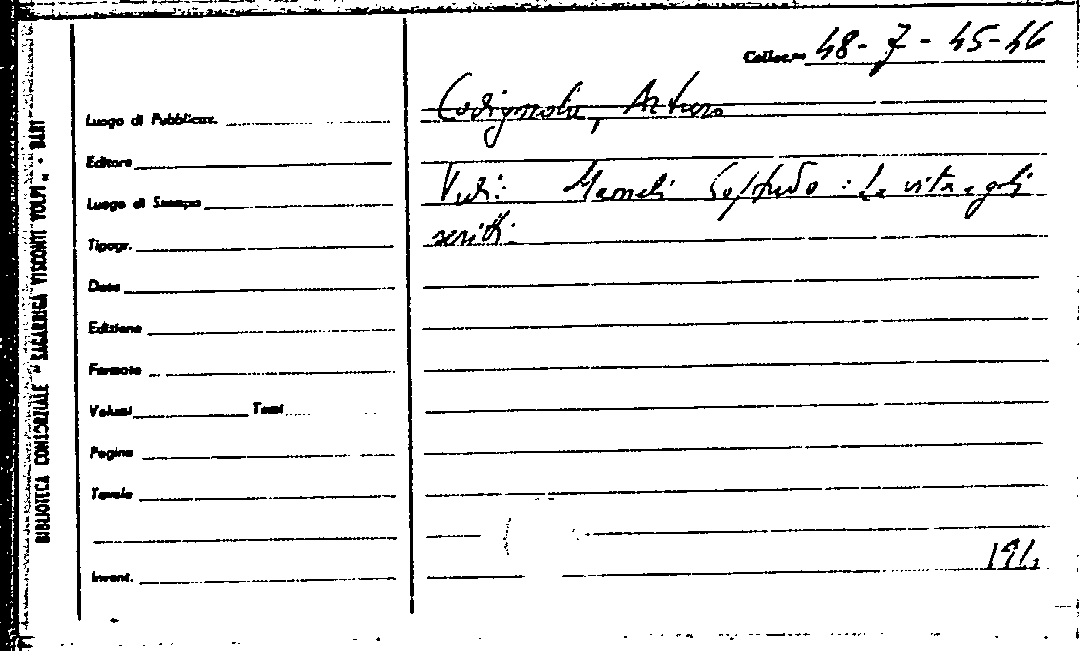 Colloc.ne 48-7-45-46
Codignola, Arturo
Vedi: Mameli Goffredo: La vita e gli
scritti.
Luogo di Pubblicaz.
Editore
Luogo di Stampa
Tipogr.
Data
Edizione
Formato
Volumi Tomi
Pagine
Tavole
Invent.
BIBLIOTECA CONSORZIALE "SAGARRIGA VISCONTI VOLPI" - BARI